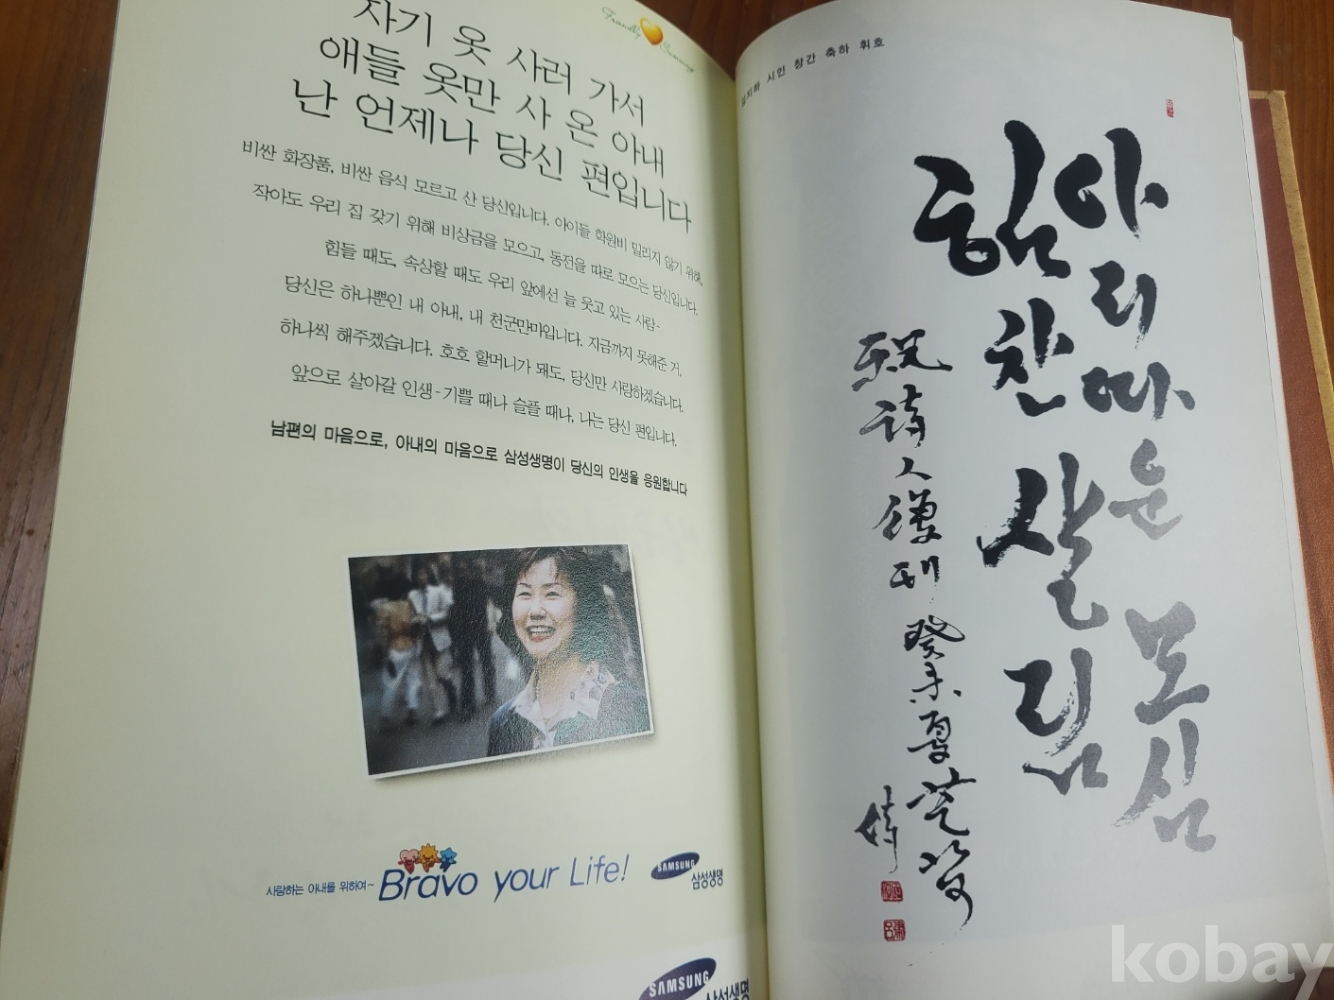 Friendly Samsung
자기 옷 사러 가서
애들 옷만 사 온 아내
난 언제나 당신 편입니다
비싼 화장품, 비싼 음식 모르고 산 당신입니다. 아이들 학원비 밀리지 않기 위해,
작아도 우리 집 갖기 위해 비상금을 모으고, 동전을 따로 모으는 당신입니다.
힘들 때도, 속상할 때도 우리 앞에선 늘 웃고 있는 사람-
당신은 하나뿐인 내 아내, 내 천군만마입니다. 지금까지 못해준 거,
하나씩 해주겠습니다. 호호 할머니가 돼도, 당신만 사랑하겠습니다.
앞으로 살아갈 인생-기쁠 때나 슬플 때나, 나는 당신 편입니다.
남편의 마음으로, 아내의 마음으로 삼성생명이 당신의 인생을 응원합니다
사랑하는 아내를 위하여~ Bravo your Life!
SAMSUNG
삼성생명
SAMSUNG
삼성생명
김지하 시인 창간 축하 휘호
아리따운 모심
힘찬 살림
祝 詩人 創刊
癸未 夏 芝河
kobay